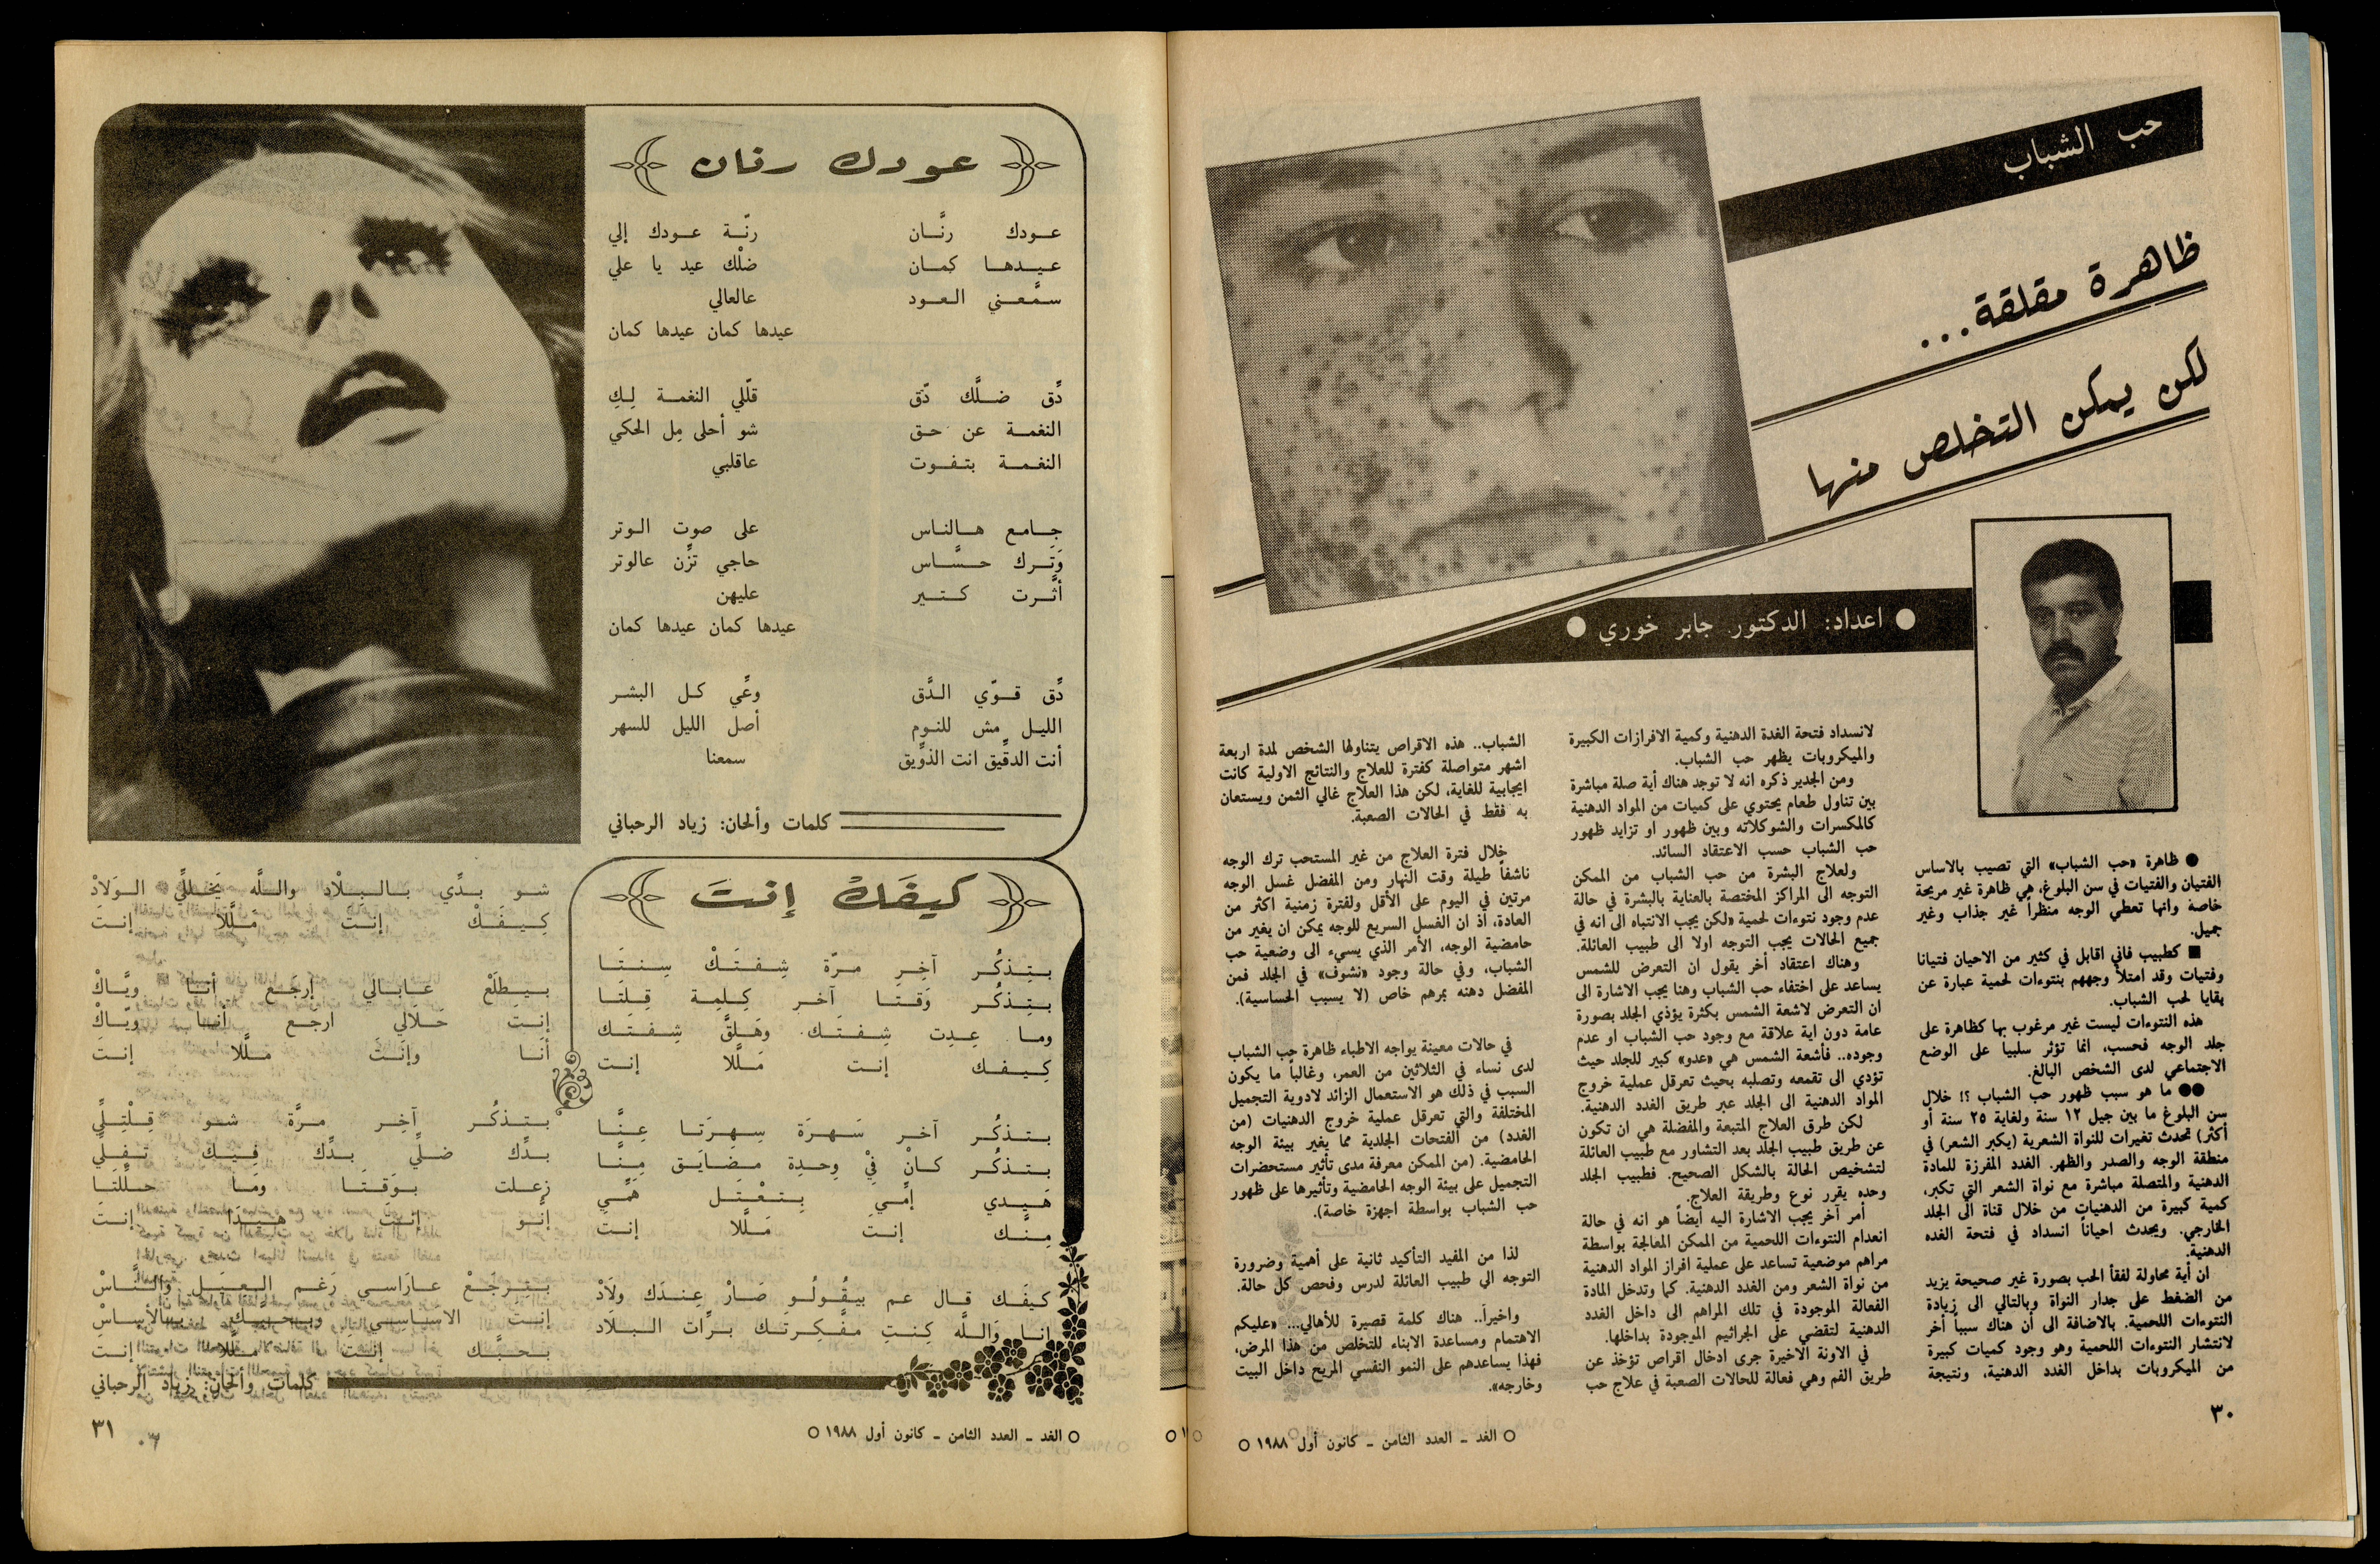 حب الشباب
ظاهرة مقلقة...
لكن يمكن التخلص منها
● اعداد: الدكتور جابر خوري ●
● ظاهرة «حب الشباب» التي تصيب بالاساس
الفتيان والفتيات في سن البلوغ، هي ظاهرة غير مريحة
خاصة وانها تعطي الوجه منظراً غير جذاب وغير
جميل.
■ كطبيب فاني اقابل في كثير من الاحيان فتيانا
وفتيات وقد امتلأ وجههم بنتوءات لحمية عبارة عن
بقايا لحب الشباب.
هذه النتوءات ليست غير مرغوب بها كظاهرة على
جلد الوجه فحسب، انما تؤثر سلبيا على الوضع
الاجتماعي لدى الشخص البالغ.
●● ما هو سبب ظهور حب الشباب ؟! خلال
سن البلوغ ما بين جيل ١٢ سنة ولغاية ٢٥ سنة أو
أكثر) تحدث تغيرات للنواة الشعرية (يكبر الشعر) في
منطقة الوجه والصدر والظهر. الغدد المفرزة للمادة
الدهنية والمتصلة مباشرة مع نواة الشعر التي تكبر،
كمية كبيرة من الدهنيات من خلال قناة الى الجلد
الخارجي. ويحدث احياناً انسداد في فتحة الغده
الدهنية.
ان أية محاولة لفقأ الحب بصورة غير صحيحة يزيد
من الضغط على جدار النواة وبالتالي الى زيادة
النتوءات اللحمية. بالاضافة الى أن هناك سبباً أخر
لانتشار النتوءات اللحمية وهو وجود كميات كبيرة
من الميكروبات بداخل الغدد الدهنية، ونتيجة
لانسداد فتحة الغدة الدهنية وكمية الافرازات الكبيرة
والميكروبات يظهر حب الشباب.
ومن الجدير ذكره انه لا توجد هناك أية صلة مباشرة
بين تناول طعام يحتوي على كميات من المواد الدهنية
كالمكسرات والشوكلاته وبين ظهور او تزايد ظهور
حب الشباب حسب الاعتقاد السائد.
ولعلاج البشرة من حب الشباب من الممكن
التوجه الى المراكز المختصة بالعناية بالبشرة في حالة
عدم وجود نتوءات لحمية «لكن يجب الانتباه الى انه في
جميع الحالات يجب التوجه اولا الى طبيب العائلة.
وهناك اعتقاد أخر يقول ان التعرض للشمس
يساعد على اختفاء حب الشباب وهنا يجب الاشارة الى
ان التعرض لاشعة الشمس بكثرة يؤذي الجلد بصورة
عامة دون اية علاقة مع وجود حب الشباب او عدم
وجوده.. فأشعة الشمس هي «عدو» كبير للجلد حيث
تؤدي الى تقمعه وتصلبه بحيث تعرقل عملية خروج
المواد الدهنية الى الجلد عبر طريق الغدد الدهنية.
لكن طرق العلاج المتبعة والمفضلة هي ان تكون
عن طريق طبيب الجلد بعد التشاور مع طبيب العائلة
لتشخيص الحالة بالشكل الصحيح. فطبيب الجلد
وحده يقرر نوع وطريقة العلاج.
أمر آخر يجب الاشارة اليه أيضاً هو انه في حالة
انعدام النتوءات اللحمية من الممكن المعالجة بواسطة
مراهم موضعية تساعد على عملية افراز المواد الدهنية
من نواة الشعر ومن الغدد الدهنية. كما وتدخل المادة
الفعالة الموجودة في تلك المراهم الى داخل الغدد
الدهنية لتقضي على الجراثيم الموجودة بداخلها.
في الاونة الاخيرة جرى ادخال اقراص تؤخذ عن
طريق الفم وهي فعالة للحالات الصعبة في علاج حب
الشباب.. هذه الاقراص يتناولها الشخص لمدة اربعة
اشهر متواصلة كفترة للعلاج والنتائج الاولية كانت
ايجابية للغاية، لكن هذا العلاج غالي الثمن ويستعان
به فقط في الحالات الصعبة.
خلال فترة العلاج من غير المستحب ترك الوجه
ناشفاً طيلة وقت النهار ومن المفضل غسل الوجه
مرتين في اليوم على الأقل ولفترة زمنية اكثر من
العادة، أذ ان الغسل السريع للوجه يمكن ان يغير من
حامضية الوجه، الأمر الذي يسيء الى وضعية حب
الشباب، وفي حالة وجود «نشوف» في الجلد فمن
المفضل دهنه بمرهم خاص (لا يسبب الحساسية).
في حالات معينة يواجه الاطباء ظاهرة حب الشباب
لدى نساء في الثلاثين من العمر، وغالباً ما يكون
السبب في ذلك هو الاستعمال الزائد لادوية التجميل
المختلفة والتي تعرقل عملية خروج الدهنيات (من
الغدد) من الفتحات الجلدية مما يغير بيئة الوجه
الحامضية. (من الممكن معرفة مدى تأثير مستحضرات
التجميل على بيئة الوجه الحامضية وتأثيرها على ظهور
حب الشباب بواسطة اجهزة خاصة).
لذا من المفيد التأكيد ثانية على أهمية وضرورة
التوجه الى طبيب العائلة لدرس وفحص كل حالة.
واخيراً.. هناك كلمة قصيرة للأهالي... «عليكم
الاهتمام ومساعدة الابناء للتخلص من هذا المرض،
فهذا يساعدهم على النمو النفسي المريح داخل البيت
وخارجه».
٣٠
○ الغد ـ العدد الثامن ـ كانون أول ١٩٨٨ ○
عودك رنان
عودك رنَّان رنّة عودك إلي
عيدها كمان ضلّك عيد يا علي
سمَّعني العود عالعالي
عيدها كمان عيدها كمان
دِّق ضلَّك دّق قلّلي النغمة لِكِ
النغمة عن حق شو أحلى مِل الحكي
النغمة بتفوت عاقلبي
جامع هالناس على صوت الوتر
وَتَرك حسَّاس حاجي تزِّن عالوتر
أثّرت كتير عليهن
عيدها كمان عيدها كمان
دِّق قوّي الدَّق وعِّي كل البشر
الليل مش للنوم أصل الليل للسهر
أنت الدقِّيق انت الذوِّيق سمعنا
كلمات وألحان: زياد الرحباني
كيفك إنت
بتِذكُر آخِر مرّة شِفتَكْ سِنتَا
بتِذكُر وَقتا آخر كِلِمِة قِلتَا
وما عِدِت شِفتَك وهَلقَّ شِفتك
كِيفك إنت مَلَّلا إنت
بتذكُر آخر سَهرَة سِهرَتا عِنَّا
بتذكُر كانْ فيْ وِحدِة مضَايَق مِنَّا
هَيدي إمّي بِتعْتَل هَمّي
مِنَّك إنت مَلَّلا إنت
كيفَك قال عم بيقُولُو صَارْ عِندَك ولَادْ
انا وَاللَّه كِنتِ مفَّكِرتك برَّات البلَاد
شو بدِّي بالبلْاد واللَّه يَخلِلّي الوَلادْ
كِيفَكْ إنتَ مَلَّلا إنتَ
بيطلَعْ عَابالي إرجَع أنا ويَّاكْ
إنتَ حَلَالي ارجع أنا ويّاكْ
أنَا وإنتَ مَلَّلا إنتَ
بتذكُر آخِر مرَّة شو قِلْتِلِّي
بدَّك ضلّي بدَّك فيكِ تفِلّي
زعلت بوَقتَا ومَا حلَّلتَا
إنُّو إنتَ هيدَا إنتَ
بترجَعْ عارَاسي رَغم العيَل والنَّاسْ
إنتَ الاساسي وبحبك بالأساسْ
بحبّك إنتَ مَلَّلا إنت
كلمات وألحان: زياد الرحباني
○ الغد ـ العدد الثامن ـ كانون أول ١٩٨٨ ○
٣١